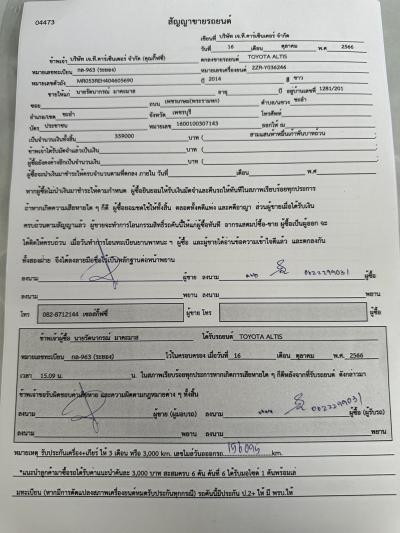 04473
สัญญาขายรถยนต์
เขียนที่ บริษัท เจ.ที.คาร์เซ็นเตอร์ จำกัด (คุณกี๊ฟซี่)
วันที่ 16 เดือน ตุลาคม พ.ศ. 2566
ข้าพเจ้า บริษัท เจ.ที.คาร์เซ็นเตอร์ จำกัด ตกลงขายรถยนต์ TOYOTA ALTIS
หมายเลขทะเบียน กล-963 (ระยอง) หมายเลขเครื่องยนต์ 2ZR-Y036246
หมายเลขตัวถัง MR053REH404605690 ปี 2014 สี ขาว
ขายให้แก่ นายรัตนาภรณ์ มาคะมาส อายุ ปี อยู่บ้านเลขที่ 1281/201
ซอย ถนน เพชรเกษม(พระรามหก) ตำบล/แขวง ชะอำ
อำเภอ/เขต ชะอำ จังหวัด เพชรบุรี โทรศัพท์
บัตร ประชาชน หมายเลข 1600100307143 ออกให้ ณ
เป็นจำนวนเงินทั้งสิ้น 359000 บาท ( สามแสนห้าหมื่นเก้าพันบาทถ้วน )
ข้าพเจ้าได้รับมัดจำแล้วเป็นเงิน บาท ( )
ผู้ซื้อยังคงค้างอีกเป็นจำนวนเงิน บาท ( )
ผู้ซื้อจะนำเงินมาชำระให้ครบจำนวนตามที่ตกลง ภายใน วันที่ เดือน พ.ศ.
หากผู้ซื้อไม่นำเงินมาชำระให้ตามกำหนด ผู้ซื้อยินยอมให้ริบเงินมัดจำและคืนรถให้ทันทีในสภาพเรียบร้อยทุกประการ
ถ้าหากเกิดความเสียหายใด ๆ ก็ดี ผู้ซื้อยอมชดใช้ให้ทั้งสิ้น ตลอดทั้งคดีแพ่ง และคดีอาญา ส่วนผู้ขายเมื่อได้รับเงิน
ครบถ้วนตามสัญญาแล้ว ผู้ขายจะทำการโอนกรรมสิทธิ์รถคันนี้ให้แก่ผู้ซื้อทันที อากรแสตมป์ซื้อ-ขาย ผู้ซื้อเป็นผู้ออก จะ
ได้คิดให้ครบถ้วน เมื่อวันทำการโอนทะเบียนยานพาหนะ ฯ ผู้ซื้อ และผู้ขายได้อ่านข้อความเข้าใจดีแล้ว และตกลงกัน
ทั้งสองฝ่าย จึงได้ลงลายมือชื่อไว้เป็นหลักฐานต่อหน้าพยาน
ลงนาม ผู้ขาย ลงนาม 0622299031 ผู้ซื้อ
ลงนาม พยาน ลงนาม พยาน
โทร 082-8712144 เซลล์กี๊ฟซี่ ผู้ขาย โทร ผู้ซื้อ
ข้าพเจ้าผู้ซื้อ นายรัตนาภรณ์ มาคะมาส ได้รับรถยนต์ TOYOTA ALTIS
หมายเลขทะเบียน กล-963 (ระยอง) ไว้ในครอบครอง เมื่อวันที่ 16 เดือน ตุลาคม พ.ศ. 2566
เวลา 15.09 น. น. ในสภาพเรียบร้อยทุกประการหากเกิดการเสียหายใด ๆ ก็ดีหลังจากที่รับรถยนต์ ดังกล่าวมา
ข้าพเจ้าขอรับผิดชอบค่าเสียหาย และความผิดตามกฎหมายต่าง ๆ ทั้งสิ้น
ลงนาม ผู้ขาย (ผู้มอบรถ) ลงนาม 0622299031 ผู้ซื้อ (ผู้รับรถ)
ลงนาม พยาน ลงนาม พยาน
หมายเหตุ รับประกันเครื่อง+เกียร์ ให้ 3 เดือน หรือ 3,000 km. เลขไมล์วันออกรถ km.
*แนะนำลูกค้ามาซื้อรถได้รับค่าแนะนำคันละ 3,000 บาท สะสมครบ 6 คัน คันที่ 6 ได้รับมอไซค์ 1 คันพร้อมเล่
มทะเบียน (หากมีการดัดแปลงสภาพเครื่องยนต์หมดรับประกันทุกกรณี) รถคันนี้มีประกัน ป.2+ ให้ มี พรบ.ให้